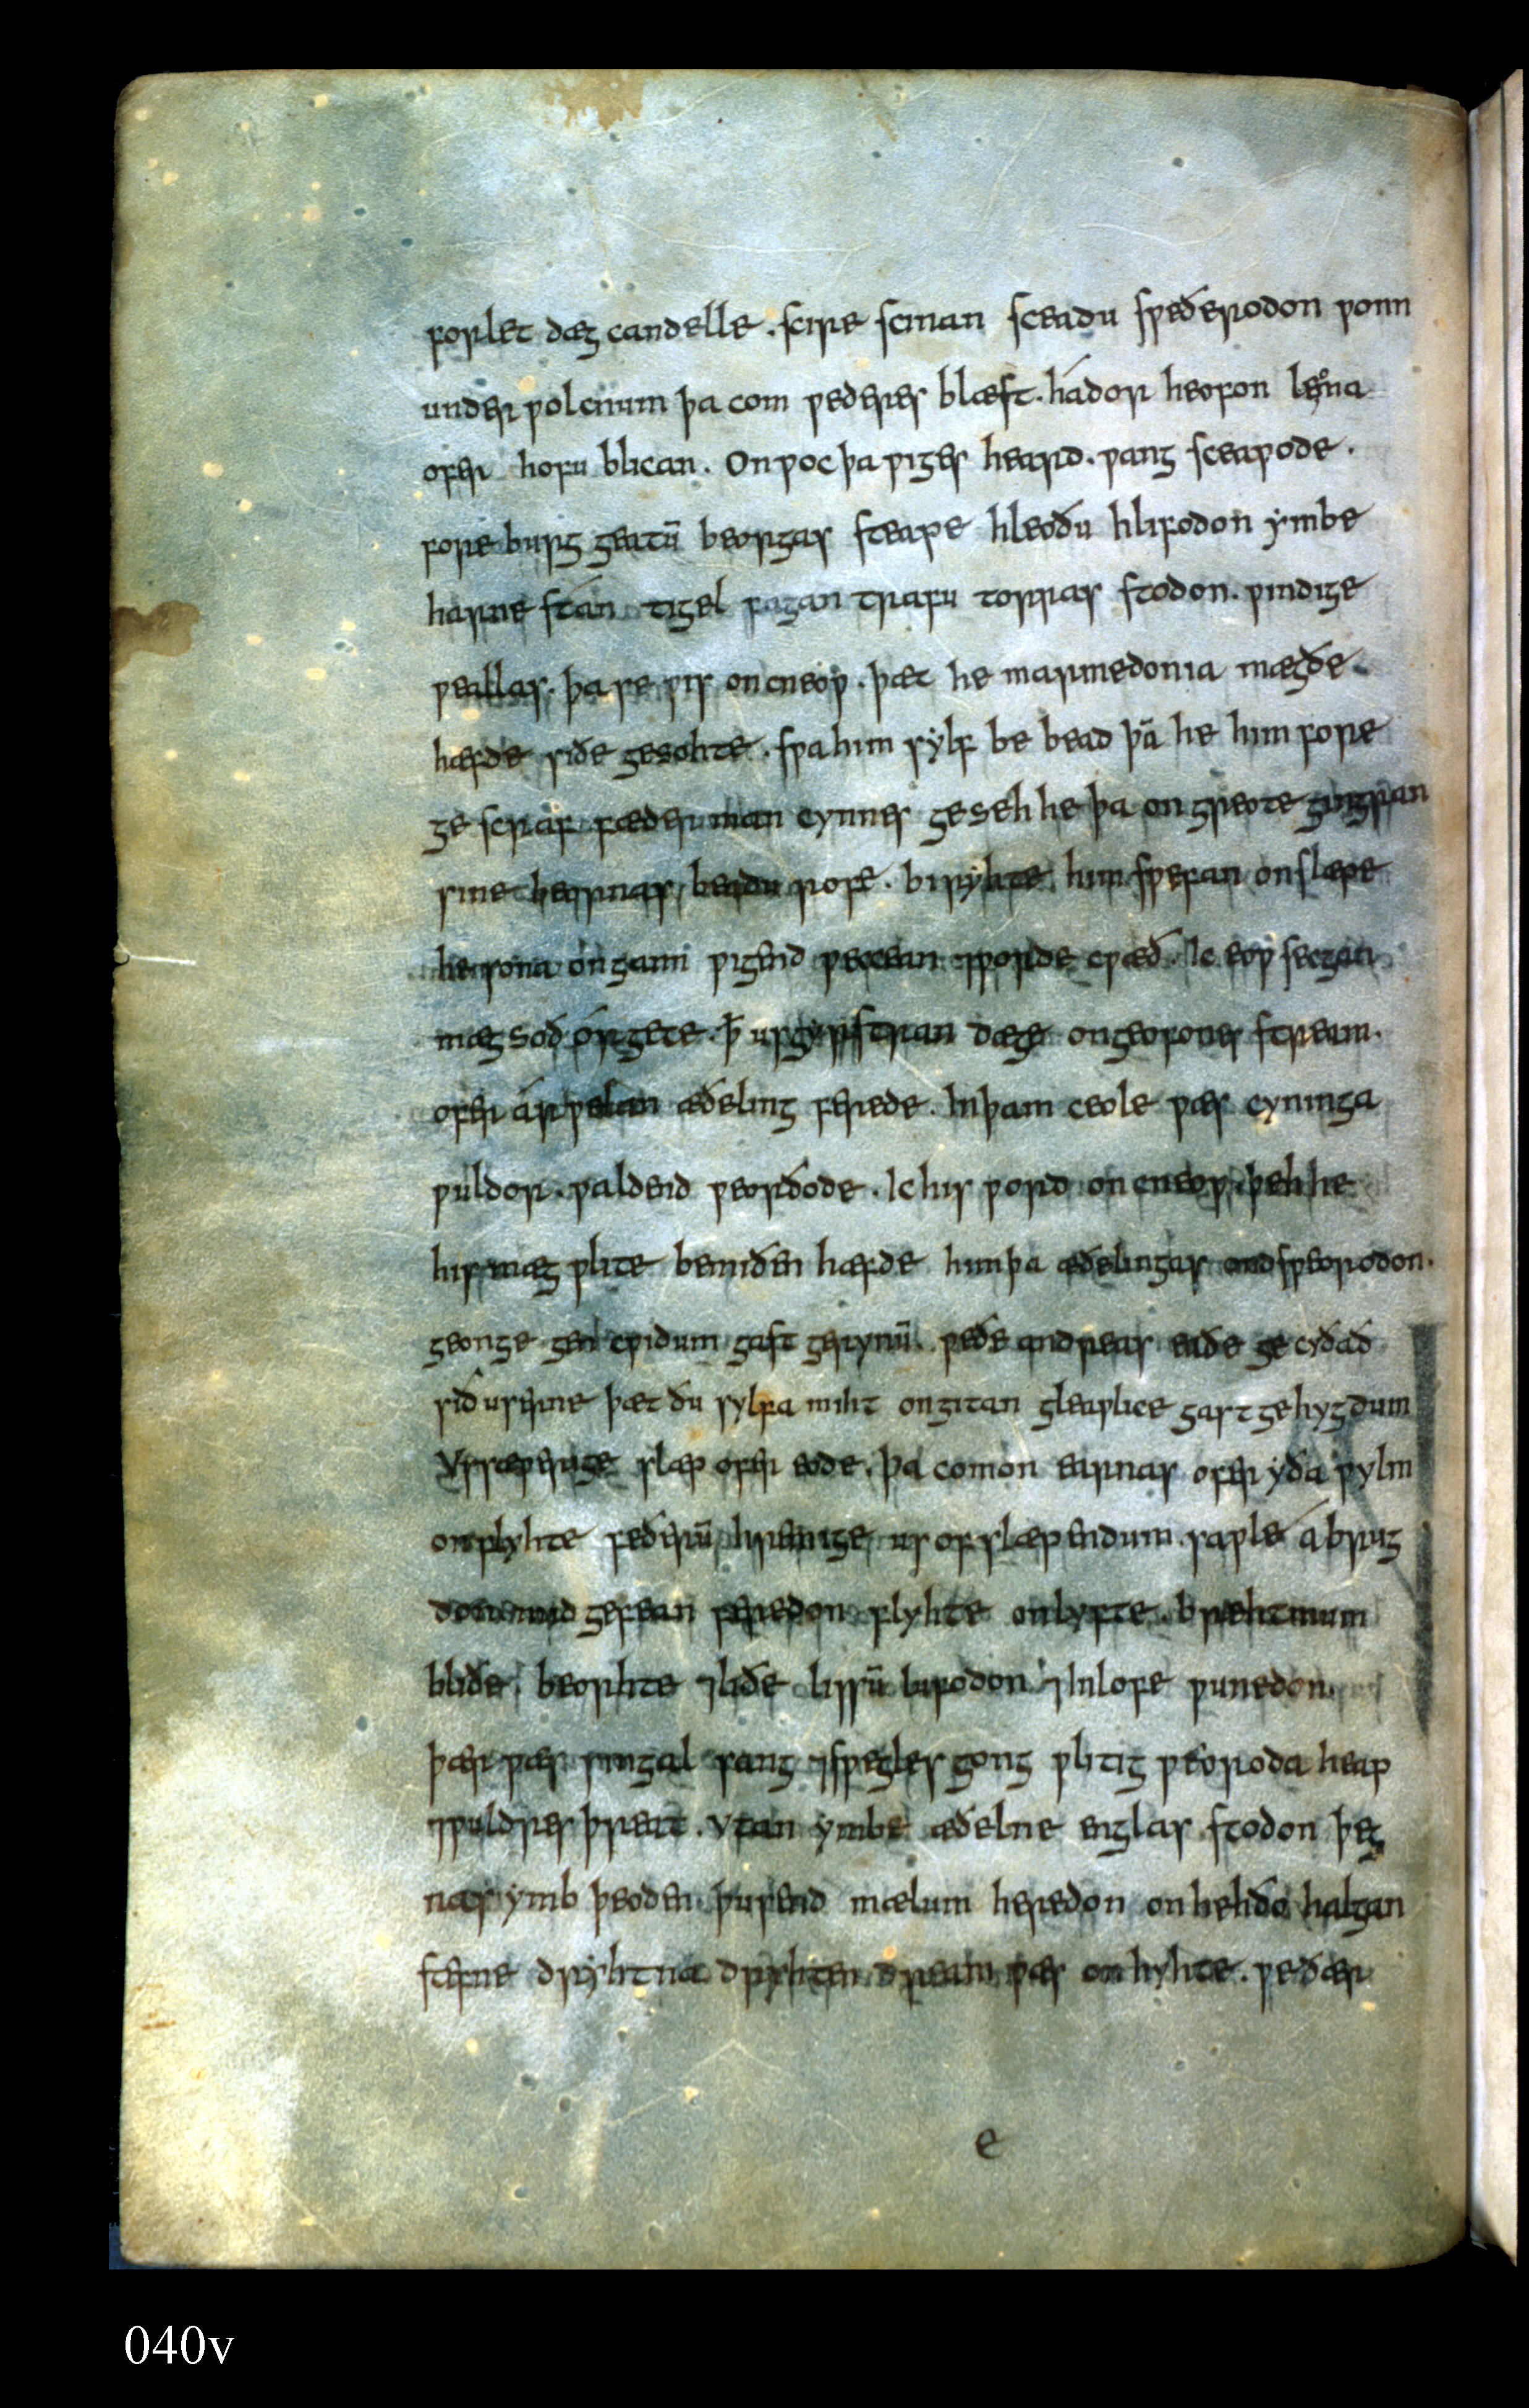 forlet dæg candelle . scire scinan sceadu sƿeðerodon ƿonn
under ƿolcnum þa com ƿederes blæst . hádor heofon leoma
ofer hofu blican . Onƿoc þa ƿiges heard . ƿang sceaƿode .
fore burg geatū beorgas steape hleoðu hlifodon ẏmbe
harne stán tigel fagan trafu torras stodon . ƿindige
ƿeallas . þa se ƿis oncneoƿ . þæt he marmedonia mægðe
hæfde siðe gesohte . sƿa him sẏlf be bead þā he him fore
ge scraf fæder man cynnes geseh he þa on greote gingran
sine beornas beadu rofe . birẏhte him sƿefan on slæpe
he sona óngann ƿigend ƿeccean ⁊ƿorde cƿæð . Ic eoƿ secgan
mæg soð órgete . þ̄ us gẏrstran dæge on geofones stream .
ofer árƿelan æðeling ferede . In þam ceole ƿæs cyninga
ƿuldor . ƿaldend ƿeorðode . Ic his ƿord oncneoƿ þeh he
his mæg ƿlite bemiðen hæfde him þa æðelingas ondsƿeorodon .
geonge gen cƿidum gast gerynū . ƿeðe andreas eaðe ge cyðað
sið userne þæt ðu sylfa miht ongitan gleaƿlice gast gehygdum
Vs sæƿerige slæp ofer eode . þa comon earnas ofer ẏða ƿylm
on flyhte feðerū hremige us of slæpendum saƿle ábrug
don mid gefean feredon flyhte on lyfte . brehtmum
bliðe . beorhte ⁊liðe lissū lufodon ⁊Inlofe ƿunedon .
þær ƿæs singal sang ⁊sƿegles gong ƿlitig ƿeoroda heap
⁊ƿuldres þreatt . Vtan ẏmbe æðelne englas stodon þeg
nas ẏmb þeoden þusend mælum heredon on hehðo halgan
stefne drẏhtna drẏhten dream ƿæs on hyhte . ƿe ðær
e
040v